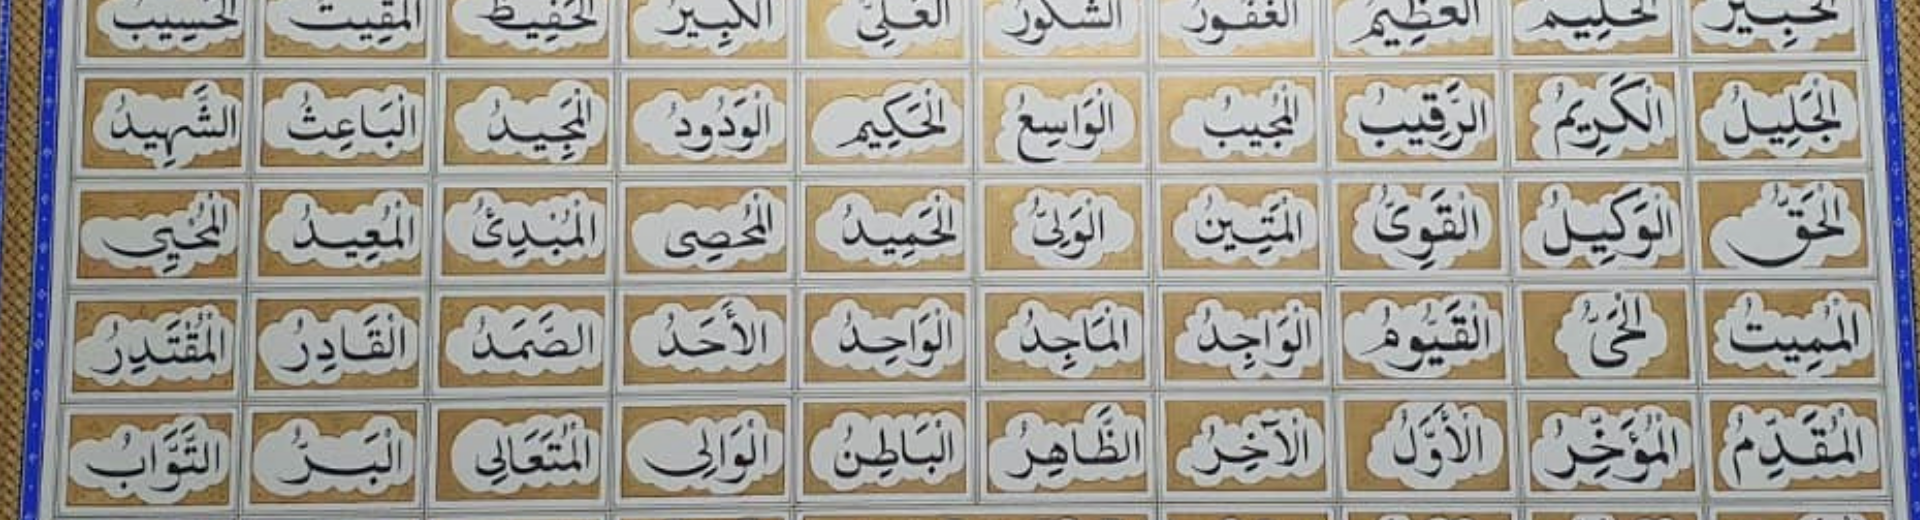 الخَبِيرُ الحَلِيمُ العَظِيمُ الغَفُورُ الشَّكُورُ العَلِيُّ الكَبِيرُ الحَفِيظُ المُقِيتُ الحَسِيبُ
الْجَلِيلُ الْكَرِيمُ الرَّقِيبُ الْمُجِيبُ الْوَاسِعُ الْحَكِيمُ الْوَدُودُ الْمَجِيدُ الْبَاعِثُ الشَّهِيدُ
الْحَقُّ الْوَكِيلُ الْقَوِىُّ الْمَتِينُ الْوَلِىُّ الْحَمِيدُ الْمُحْصِى الْمُبْدِئُ الْمُعِيدُ الْمُحْيِي
الْمُمِيتُ الْحَىُّ الْقَيُّومُ الْوَاجِدُ الْمَاجِدُ الْوَاحِدُ الأَحَدُ الصَّمَدُ الْقَادِرُ الْمُقْتَدِرُ
الْمُقَدِّمُ الْمُؤَخِّرُ الْأَوَّلُ الْآخِرُ الظَّاهِرُ الْبَاطِنُ الْوَالِى الْمُتَعَالِى الْبَرُّ التَّوَّابُ